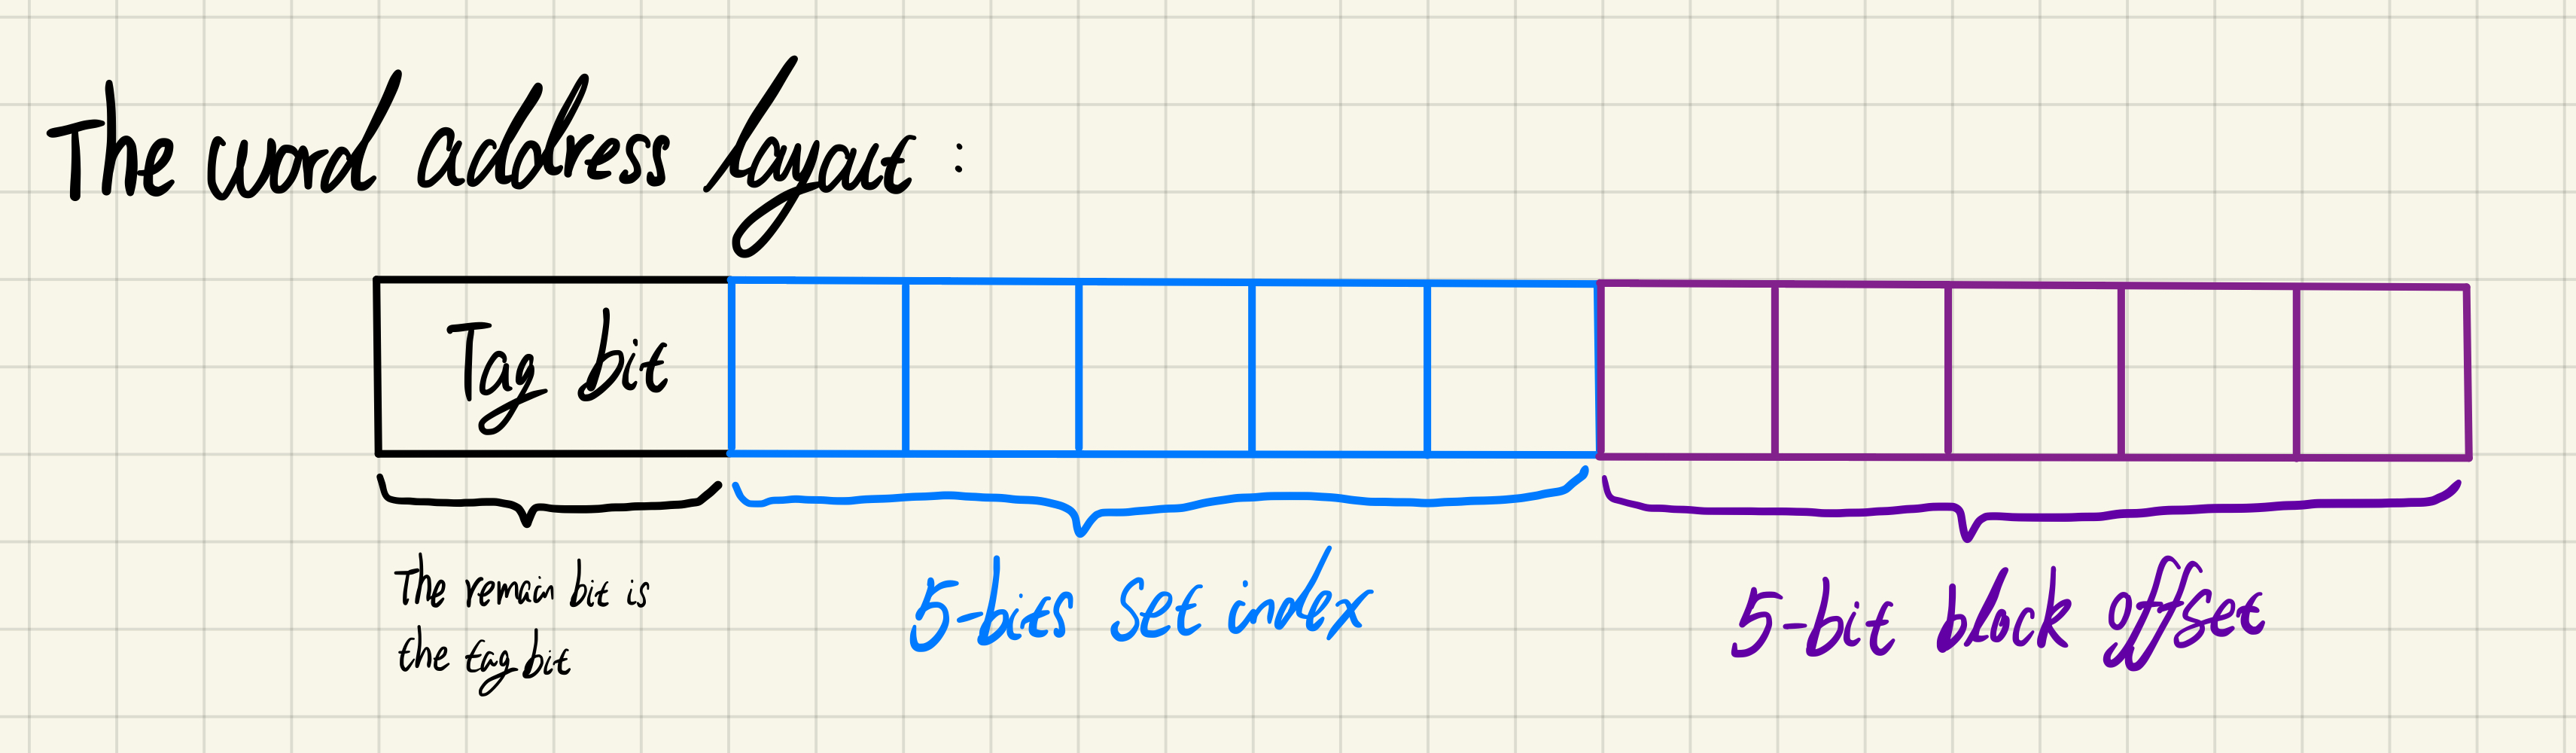 The word address layout :
Tag bit
The remain bit is
the tag bit
5-bits set index
5-bit block offset